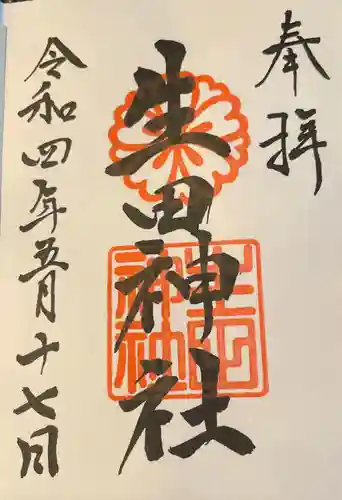 奉拝
生田神社
令和四年五月十七日
生田神社